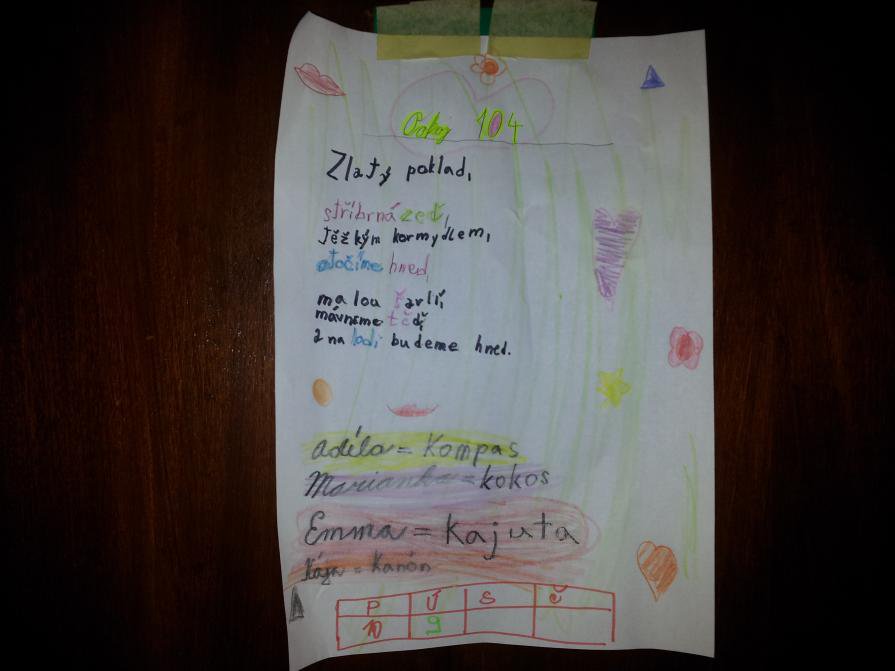 Pokoj 104
Zlatý poklad,
stříbrná zeď,
těžkým kormydlem,
otočíme hned,
malou šavlí,
mávneme teď,
a na lodi budeme hned.
Adéla = Kompas
Marianka = kokos
Emma = Kajuta
Kája = Kanón
P Ú S Č
10 9